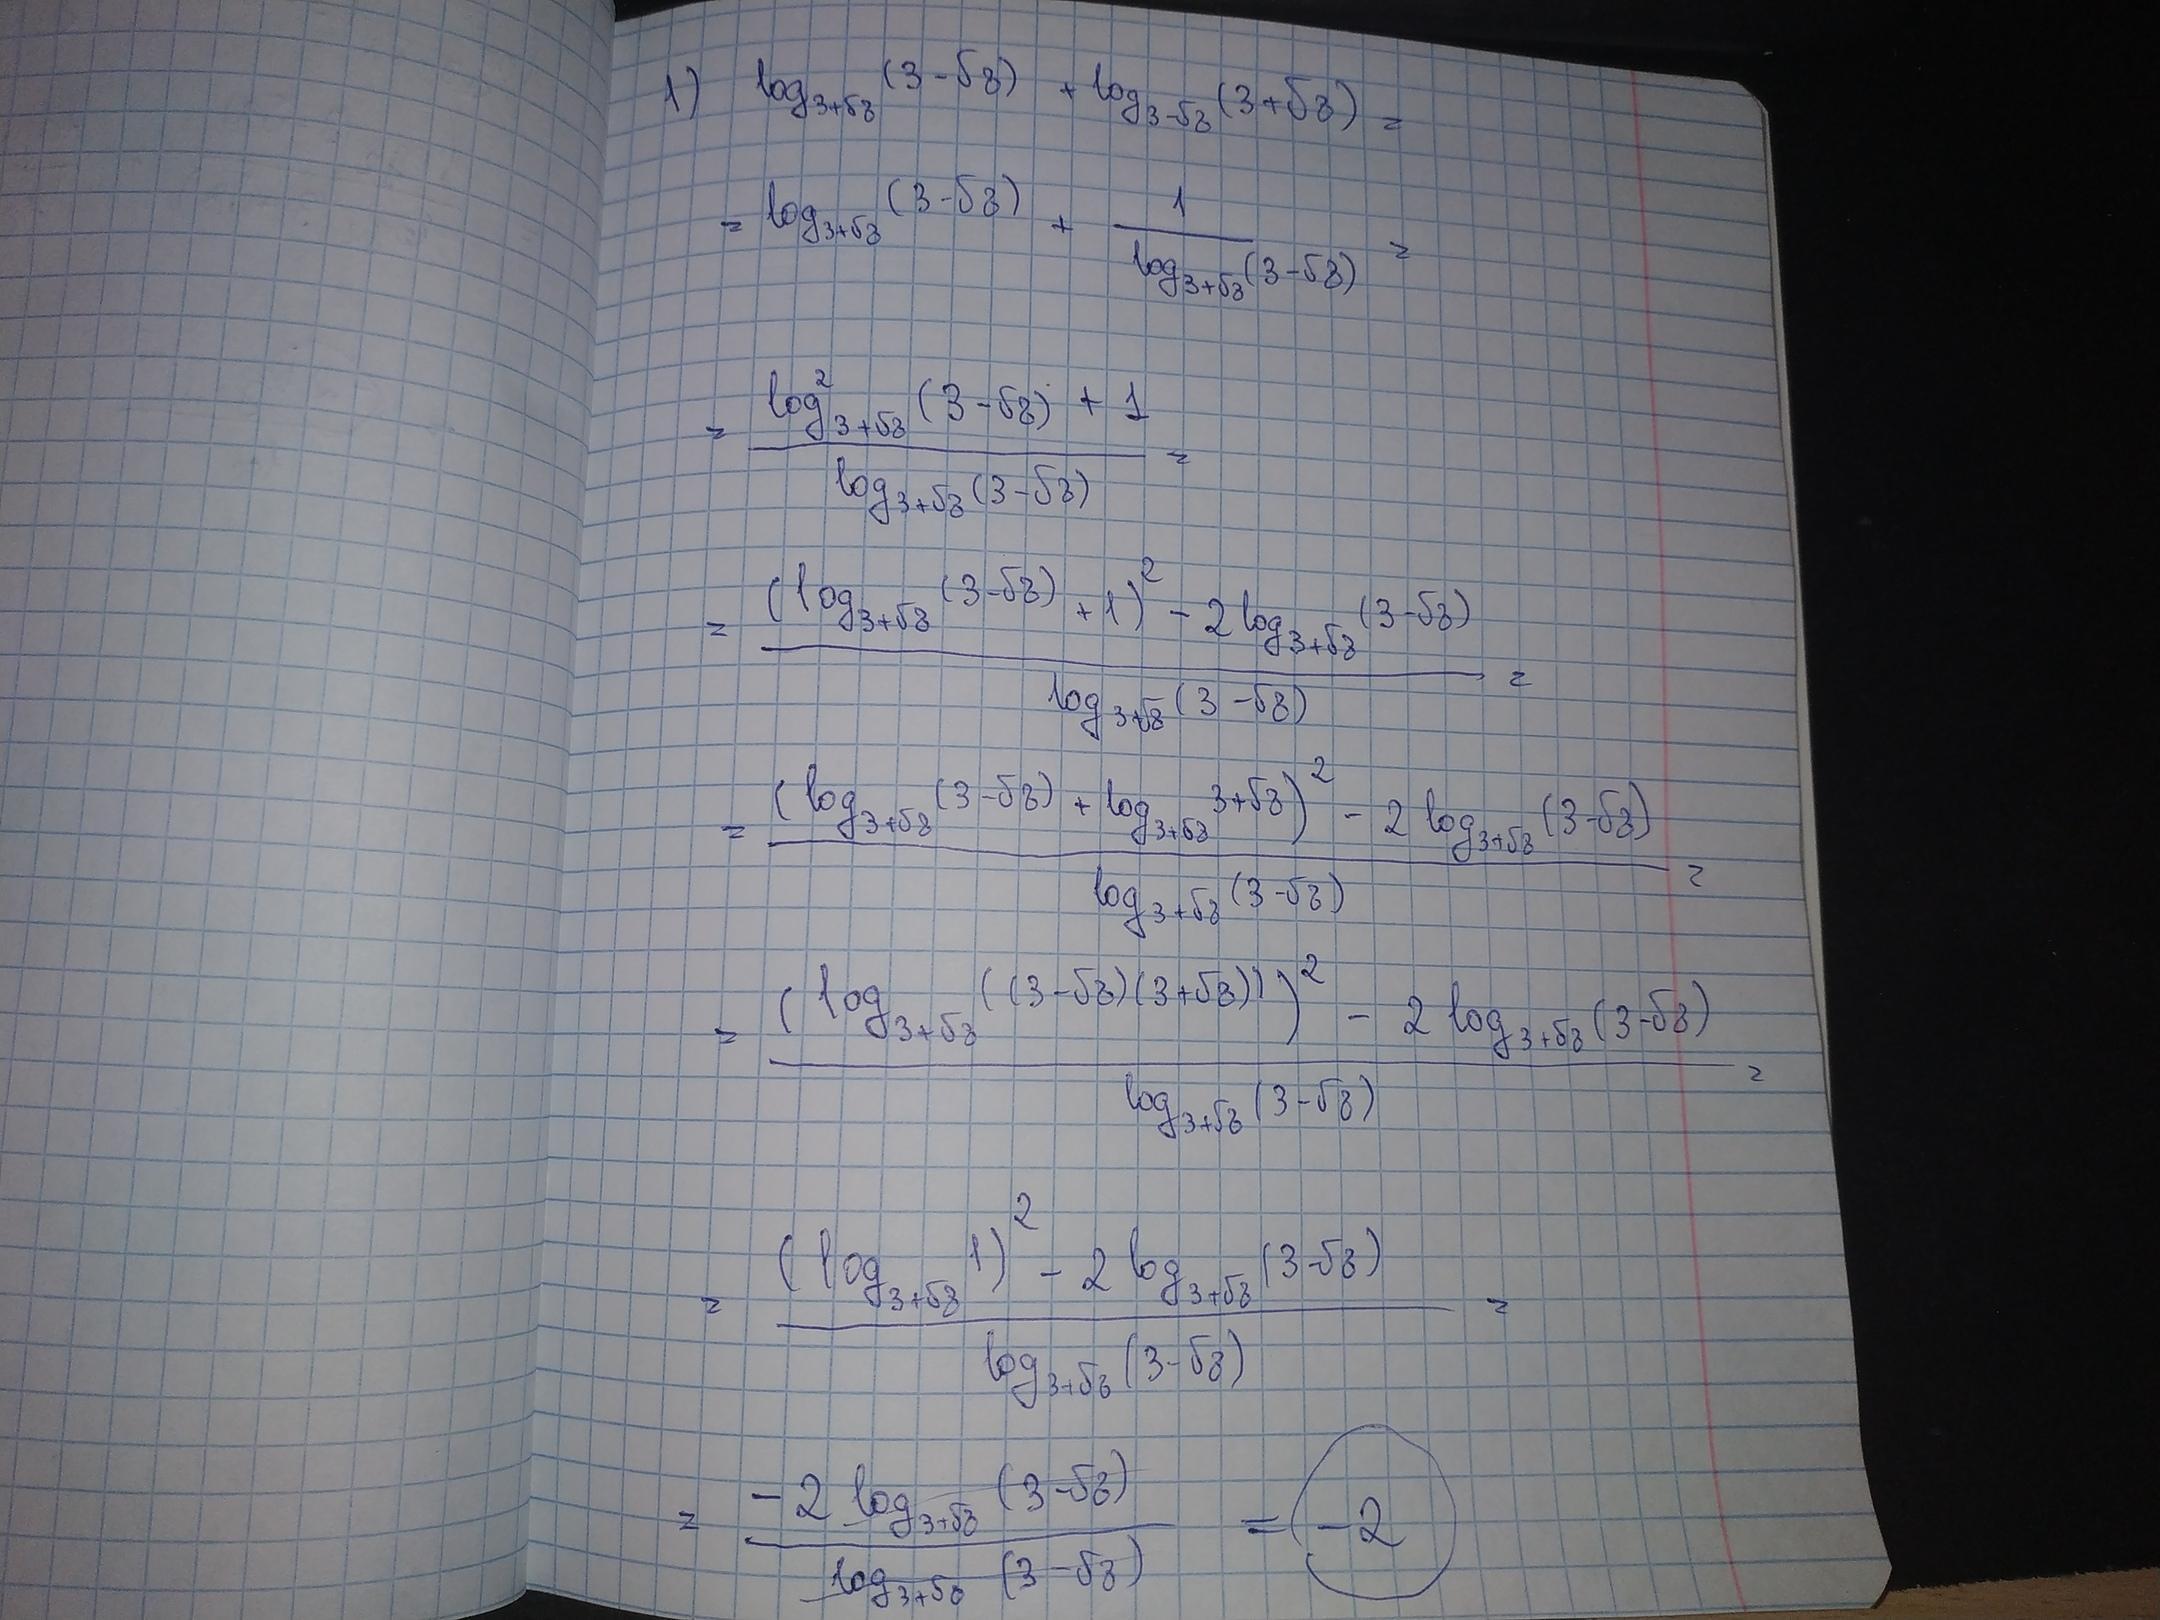 1) log_{3+√8}(3-√8) + log_{3-√8}(3+√8) =
= log_{3+√8}(3-√8) + 1/(log_{3+√8}(3-√8)) =
= (log²_{3+√8}(3-√8) + 1)/(log_{3+√8}(3-√8)) =
= ((log_{3+√8}(3-√8) + 1)² - 2 log_{3+√8}(3-√8))/(log_{3+√8}(3-√8)) =
= ((log_{3+√8}(3-√8) + log_{3+√8} 3+√8)² - 2 log_{3+√8}(3-√8))/(log_{3+√8}(3-√8)) =
= ((log_{3+√8}((3-√8)(3+√8)))² - 2 log_{3+√8}(3-√8))/(log_{3+√8}(3-√8)) =
= ((log_{3+√8} 1)² - 2 log_{3+√8}(3-√8))/(log_{3+√8}(3-√8)) =
= (-2 log_{3+√8}(3-√8))/(log_{3+√8}(3-√8)) = -2